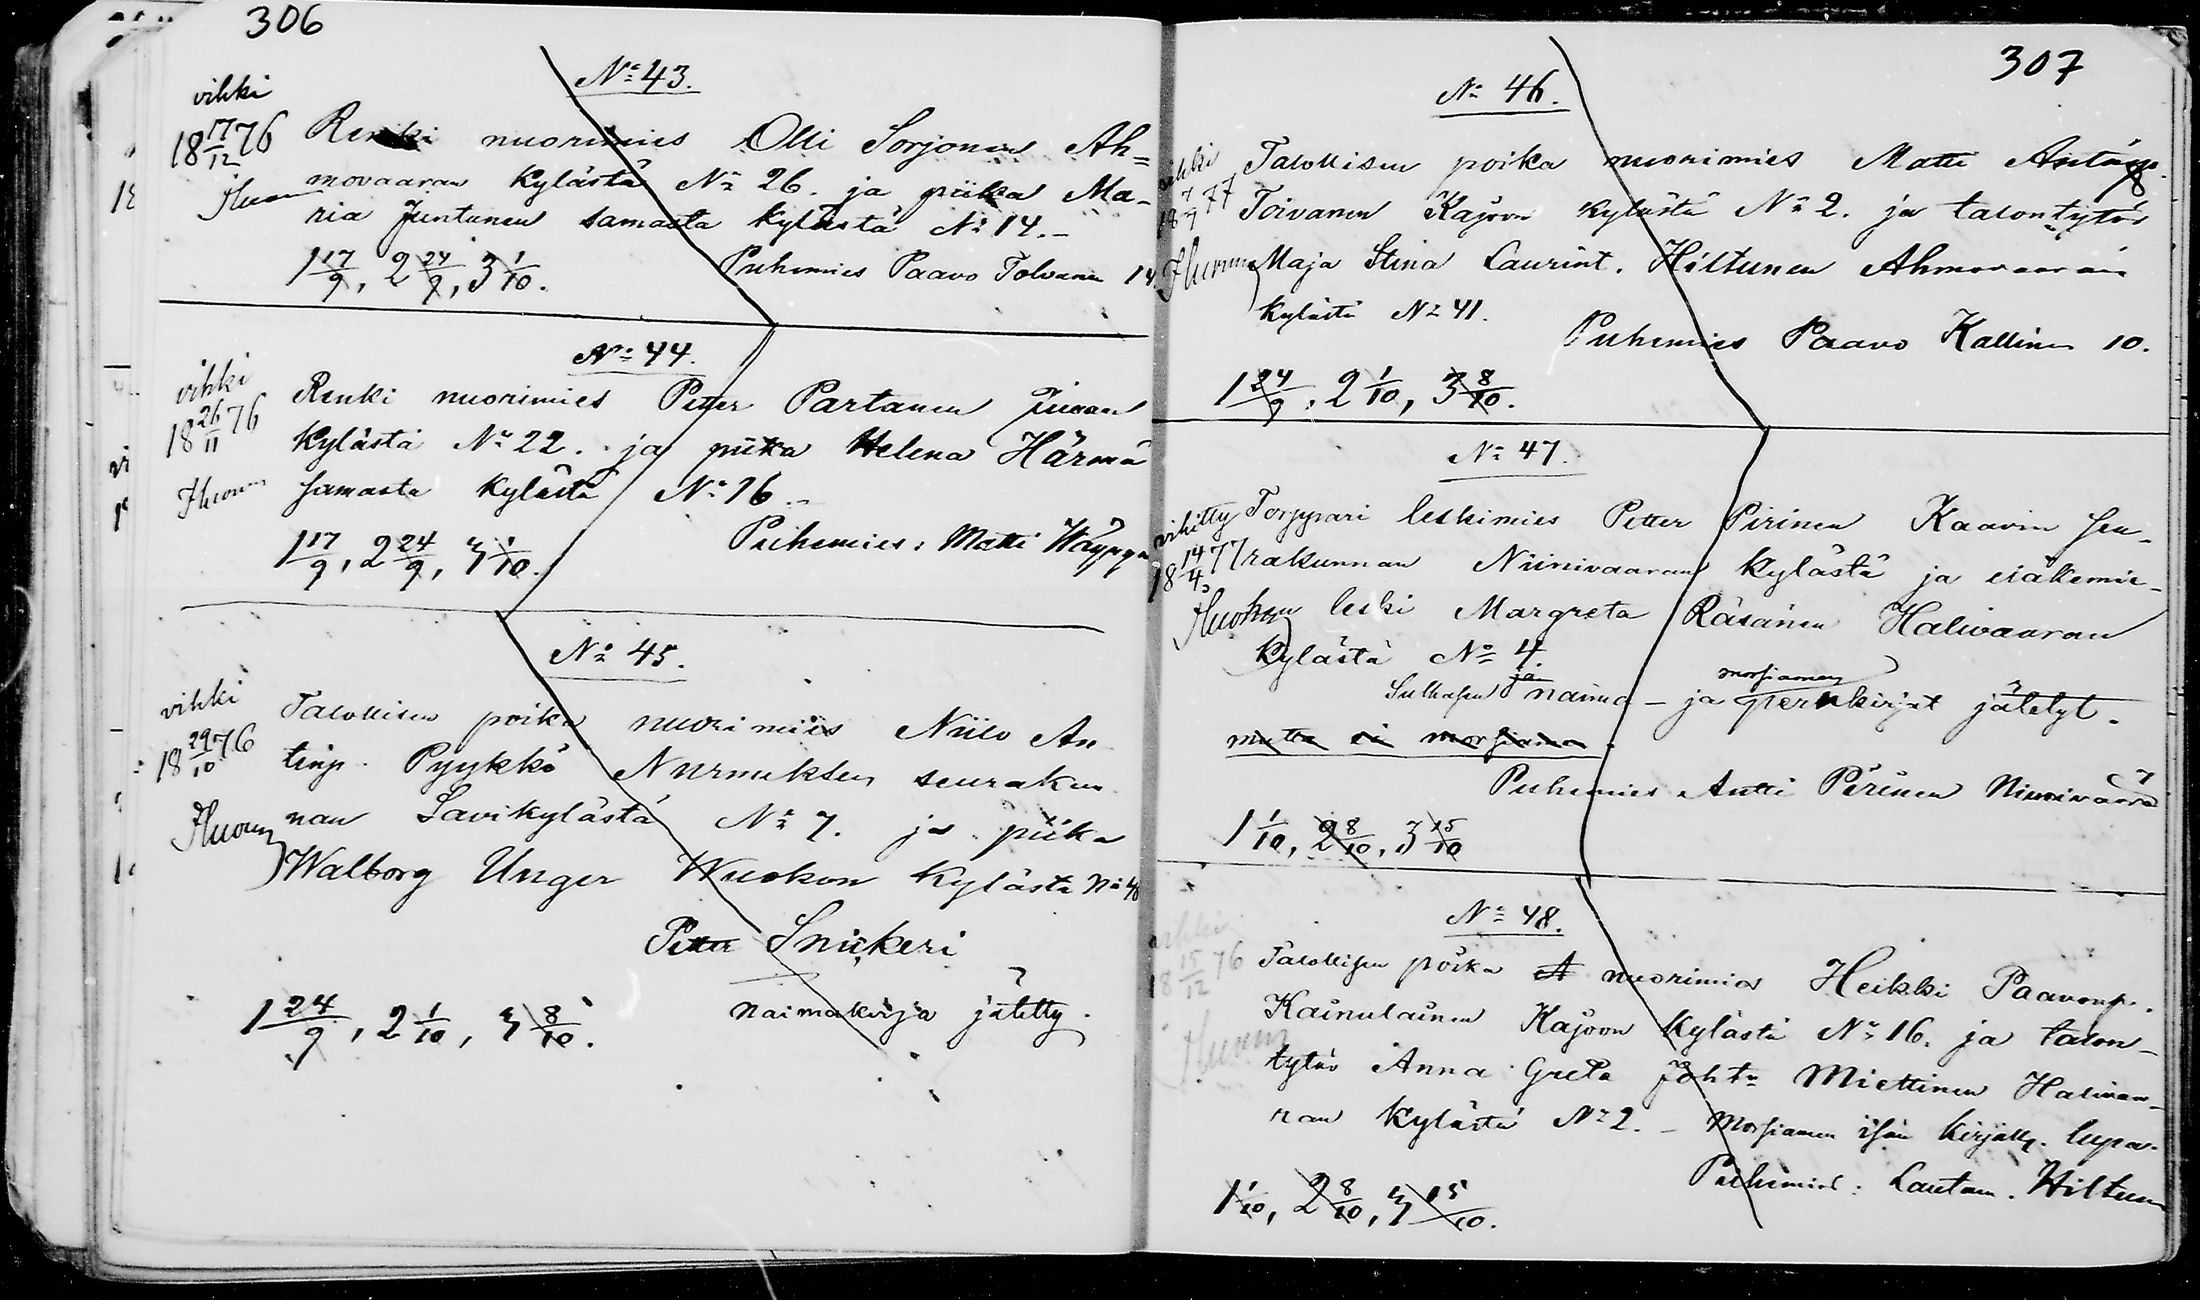 306
No 43.
vihki
18 17/12 76 Renki nuorimies Olli Sorjonen Ah=
movaaran kylästä No 26. ja piika Ma-
ria Juntunen samasta kylästä No 14.-
1 17/9, 2 24/9, 3 1/10. Puhemies Paavo Tolvanen 14.
No 44.
vihki
18 26/11 76 Renki nuorimies Petter Partanen Juuan
kylästä No 22. ja piika Helena Härmä
samasta kylästä No 16.-
1 17/9, 2 24/9, 3 1/10. Puhemies: Matti Wäyryn
No 45.
vihki
18 29/10 76 Talollisen poika nuorimies Niilo An
tinp. Pyykkö Nurmeksen seurakun
nan Savikylästä No 7. ja piika
Walborg Unger Wuokon kylästä No 48
Petter Snikeri
naimakirja jätetty.
1 24/9, 2 1/10, 3 8/10.
307
No 46.
vihki
18 7/1 77 Talollisen poika nuorimies Matti Antinp.
Toivanen Kajoon kylästä No 2. ja talontytär
Maja Stina Laurint. Hiltunen Ahmovaaran
kylästä No 41.
Puhemies Paavo Kallinen 10.
1 24/9, 2 1/10, 3 8/10.
No 47.
vihitty Torppari leskimies Petter Pirinen Kaavin seu-
18 14/4 77 rakunnan Niinivaaran kylästä ja itäkemie-
hen leski Margreta Räsänen Halivaaran
kylästä No 4.
Sulhasen ja naima- ja morsiamen perukirjat jätetyt.
mutta ei morsiamen.
Puhemies Antti Pirinen Niinivaara
1 1/10, 2 8/10, 3 15/10
No 48.
vihki
18 15/12 76 Talollisen poika A nuorimies Heikki Paavonp.
Kainulainen Kajoon kylästä No 16. ja talon-
tytär Anna Greta Joht. Miettinen Halivaa-
ran kylästä No 2. - Morsiamen isän kirjall. lupa.
Puhemies: Lautam. Hiltunen
1 1/10, 2 8/10, 3 15/10.